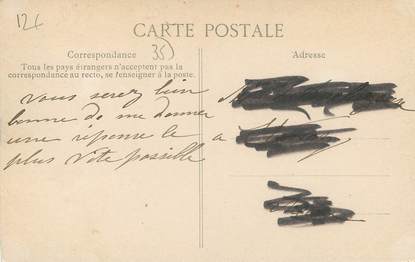 124
CARTE POSTALE
Correspondance
35
Adresse
Tous les pays étrangers n'acceptent pas la
correspondance au recto, se renseigner à la poste.
vous serez bien
bonne de me donner
une réponse le
plus vite possible
M
a